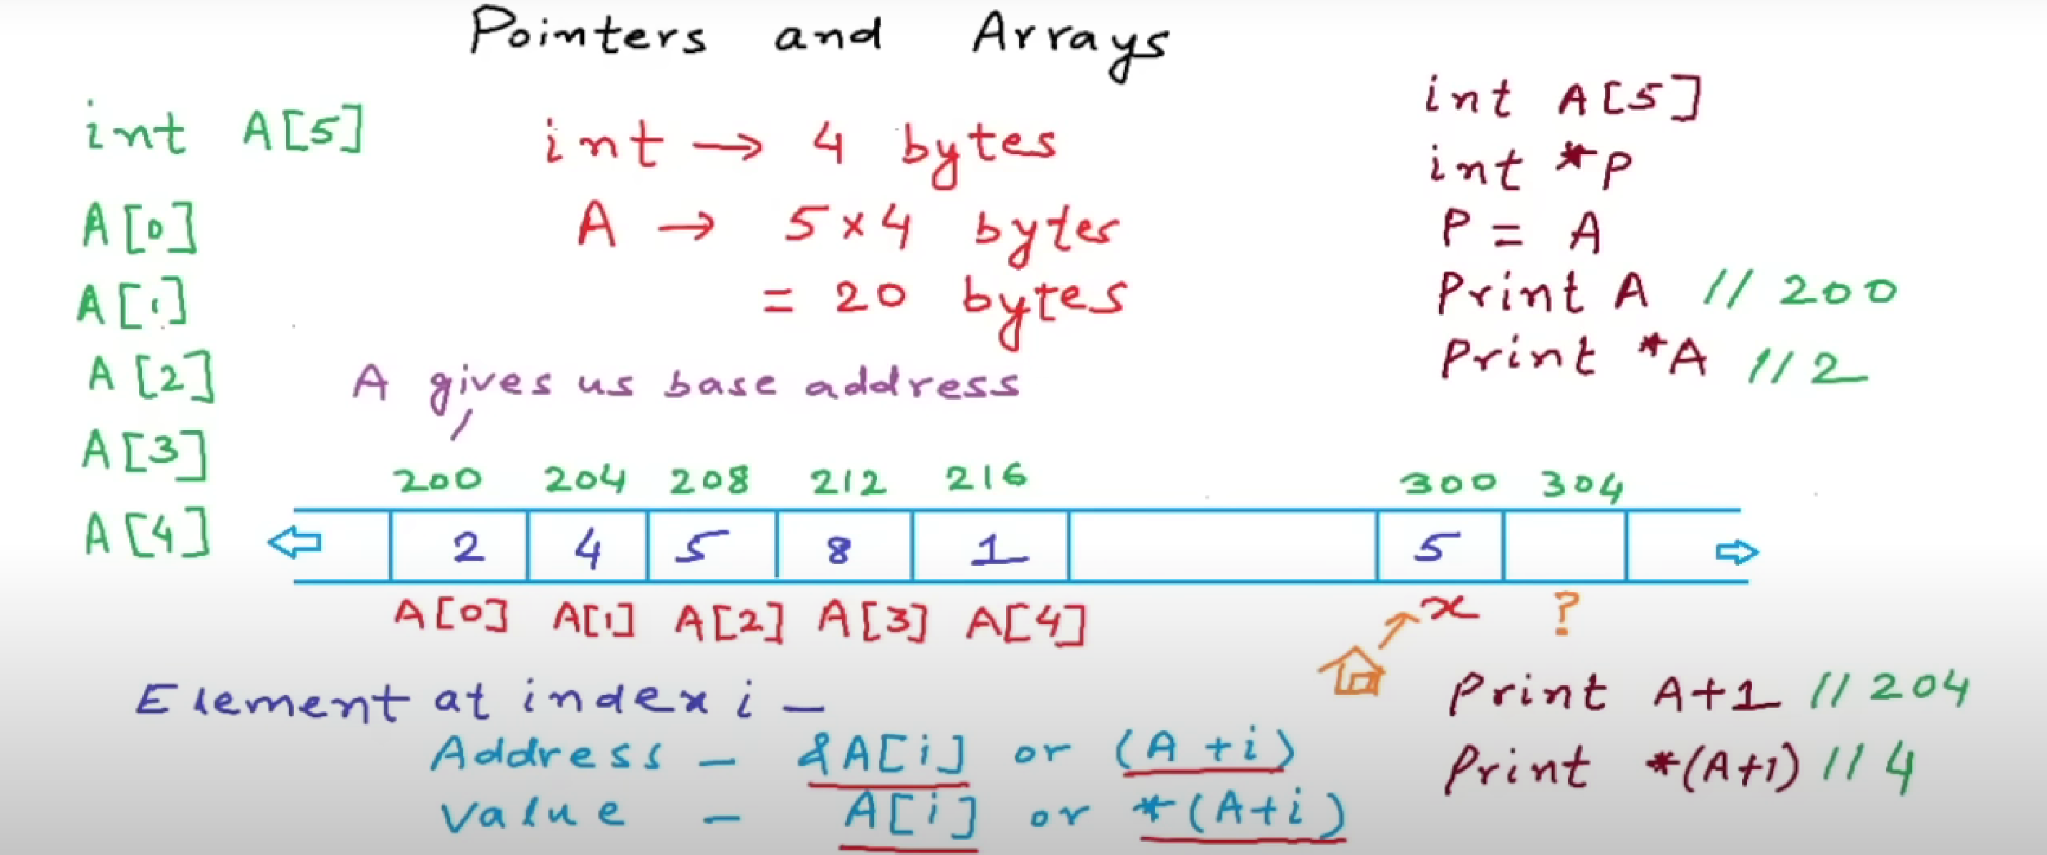 Pointers and Arrays
int A[5]
A[0]
A[1]
A[2]
A[3]
A[4]
int → 4 bytes
A → 5 x 4 bytes
= 20 bytes
A gives us base address
int A[5]
int *P
P = A
Print A // 200
Print *A // 2
200 204 208 212 216 300 304
2 4 5 8 1 5
A[0] A[1] A[2] A[3] A[4] x ?
Element at index i –
Address – &A[i] or (A + i)
Value – A[i] or *(A+i)
Print A+1 // 204
Print *(A+1) // 4